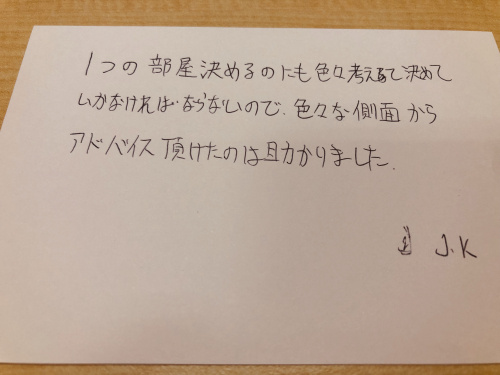 1つの部屋決めるのにも色々考えて決めて
いかなければならないので、色々な側面から
アドバイス頂けたのは助かりました。
J.K